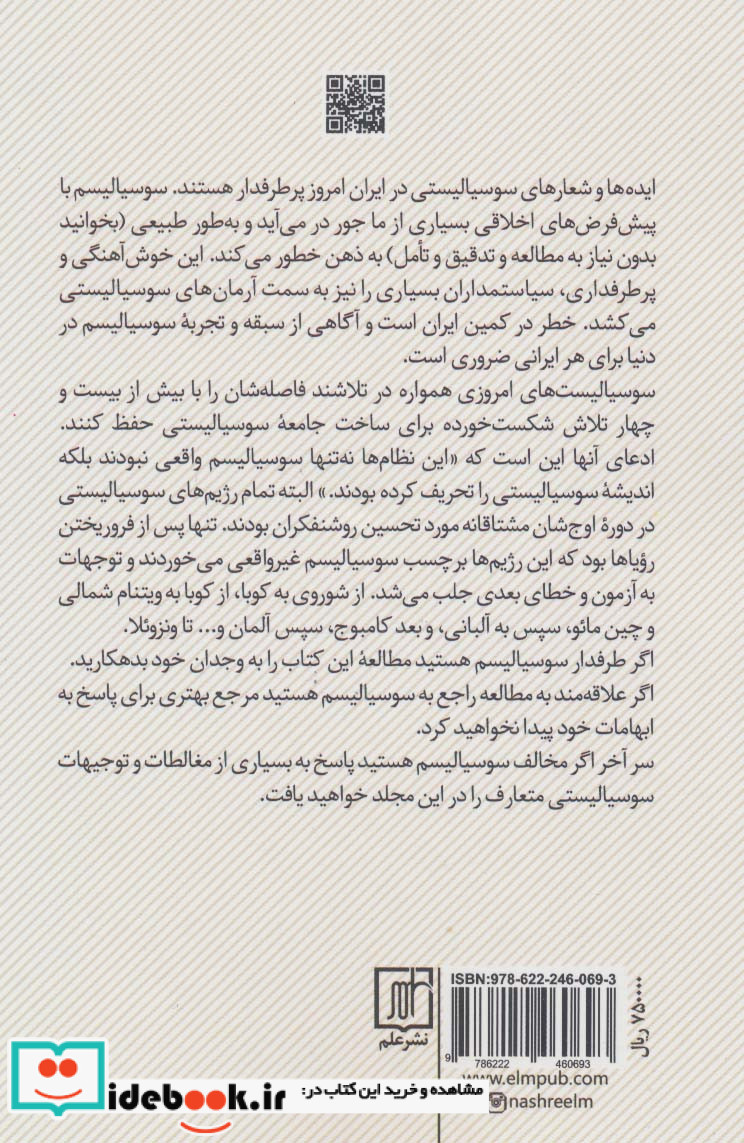 ایده‌ها و شعارهای سوسیالیستی در ایران امروز پرطرفدار هستند. سوسیالیسم با
پیش‌فرض‌های اخلاقی بسیاری از ما جور در می‌آید و به‌طور طبیعی (بخوانید
بدون نیاز به مطالعه و تدقیق و تأمل) به ذهن خطور می‌کند. این خوش‌آهنگی و
پرطرفداری، سیاستمداران بسیاری را نیز به سمت آرمان‌های سوسیالیستی
می‌کشد. خطر در کمین ایران است و آگاهی از سبقه و تجربهٔ سوسیالیسم در
دنیا برای هر ایرانی ضروری است.
سوسیالیست‌های امروزی همواره در تلاشند فاصله‌شان را با بیش از بیست و
چهار تلاش شکست‌خورده برای ساخت جامعهٔ سوسیالیستی حفظ کنند.
ادعای آنها این است که «این نظام‌ها نه‌تنها سوسیالیسم واقعی نبودند بلکه
اندیشهٔ سوسیالیستی را تحریف کرده بودند.» البته تمام رژیم‌های سوسیالیستی
در دورهٔ اوج‌شان مشتاقانه مورد تحسین روشنفکران بودند. تنها پس از فروریختن
رؤیاها بود که این رژیم‌ها برچسب سوسیالیسم غیرواقعی می‌خوردند و توجهات
به آزمون و خطای بعدی جلب می‌شد. از شوروی به کوبا، از کوبا به ویتنام شمالی
و چین مائو، سپس به آلبانی، و بعد کامبوج، سپس آلمان و... تا ونزوئلا.
اگر طرفدار سوسیالیسم هستید مطالعهٔ این کتاب را به وجدان خود بدهکارید.
اگر علاقه‌مند به مطالعه راجع به سوسیالیسم هستید مرجع بهتری برای پاسخ به
ابهامات خود پیدا نخواهید کرد.
سر آخر اگر مخالف سوسیالیسم هستید پاسخ به بسیاری از مغالطات و توجیهات
سوسیالیستی متعارف را در این مجلد خواهید یافت.
ISBN:978-622-246-069-3
9 786222 460693
۷۵۰۰۰۰ ریال
نشر علم
www.elmpub.com
nashreelm
مشاهده و خرید این کتاب در:
idebook.ir